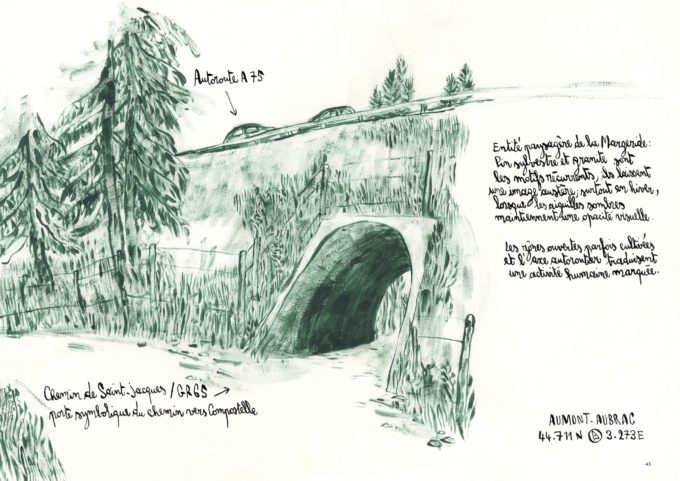 Autoroute A75
Entité paysagère de la Margeride :
Pin sylvestre et granite sont
les motifs récurrents, ils laissent
une image austère, surtout en hiver,
lorsque les aiguilles sombres
maintiennent une opacité visuelle.
Les zones ouvertes parfois cultivées
et l'axe autoroutier traduisent
une activité humaine marquée.
Chemin de Saint-Jacques / GR65
porte symbolique du chemin vers Compostelle
AUMONT-AUBRAC
44.711N A 3.273E
43